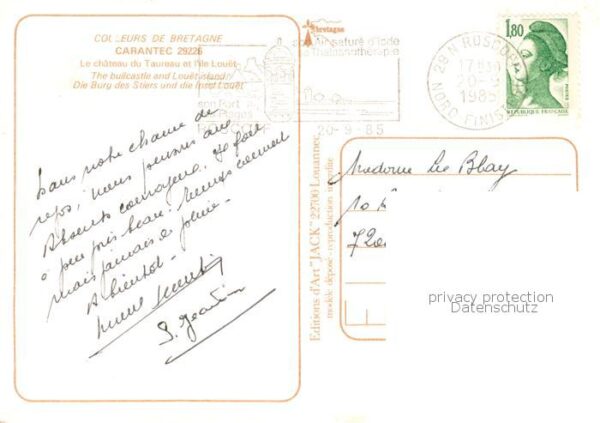 COULEURS DE BRETAGNE
CARANTEC 29226
Le château du Taureau et l'île Louët
The bullcastle and Louët island
Die Burg des Stiers und die Insel Louët
bretagne
saturé d'iode
Thalassothérapie
son Port
29 N ROSCOFF
17H30
20-9
1985
NORD FINISTERE
20-9-85
1,80
REPUBLIQUE FRANÇAISE
Dans notre chaise de
repos, nous pensons aux
Absents courageux. Il fait
à peu près beau. Temps couvert
mais jamais de pluie.
A bientôt -
Editions d'Art "JACK" 22700 Louannec
modèle déposé - reproduction interdite
Madame Le Blay
10
privacy protection
Datenschutz